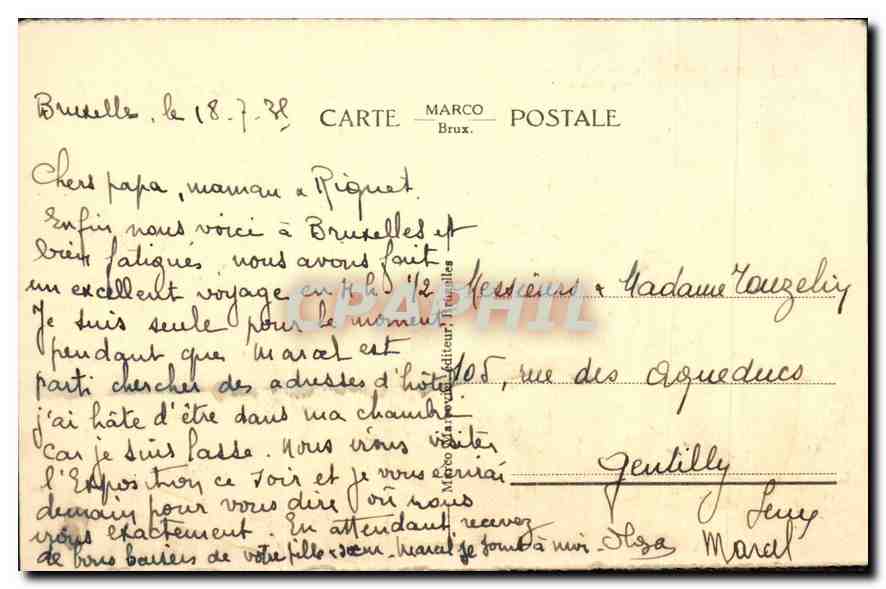 Bruxelles, le 18-7-35
CARTE MARCO POSTALE
Brux.
Chers papa, maman & Riquet.
Enfin nous voici à Bruxelles et
bien fatigués, nous avons fait
un excellent voyage en 4 h 1/2
Je suis seule pour le moment
pendant que Marcel est
parti chercher des adresses d'hôtel
j'ai hâte d'être dans ma chambre
car je suis lasse. Nous irons visiter
l'Exposition ce soir et je vous écrirai
demain pour vous dire où nous
irons exactement. En attendant recevez
de bons baisers de votre fille & sœur. Marcel se joint à moi - Olga
Marcel
Messieurs & Madame Touzelin
105, rue des Aqueducs
Gentilly
Seine
Marco Marcovici, éditeur, Bruxelles
CPAPHIL